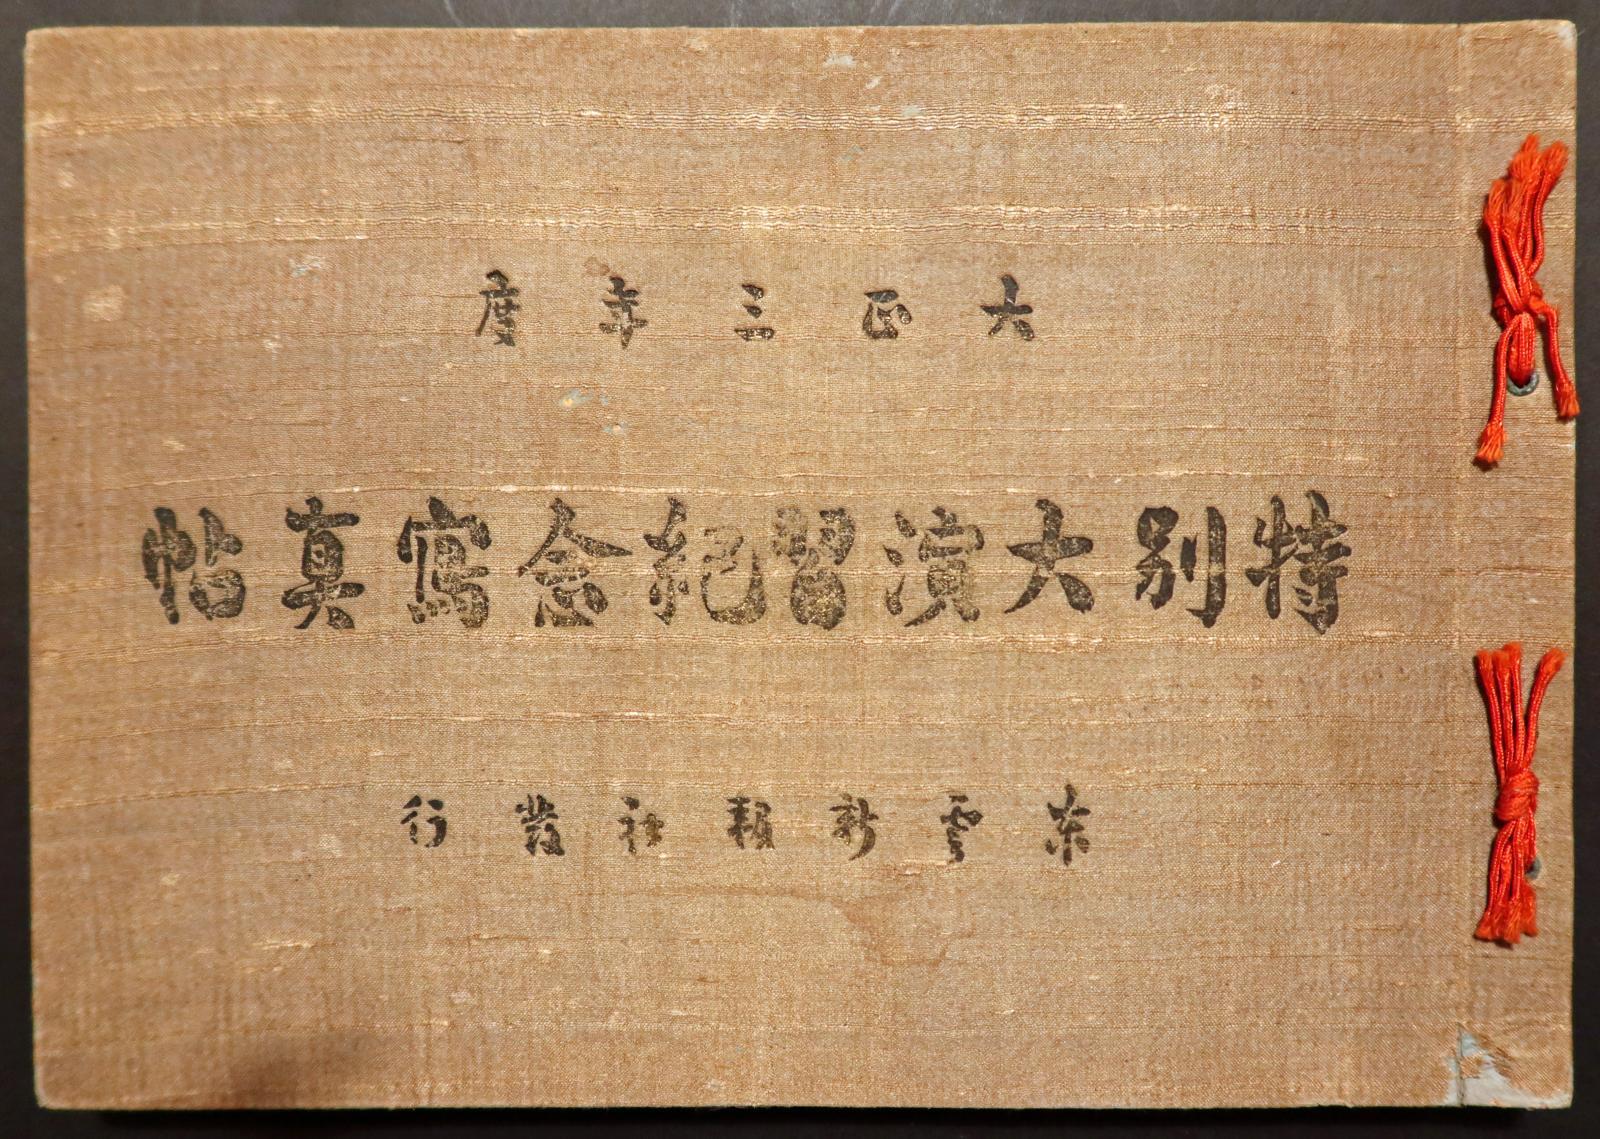 大正三年度
特別大演習紀念寫真帖
東雲新報社發行